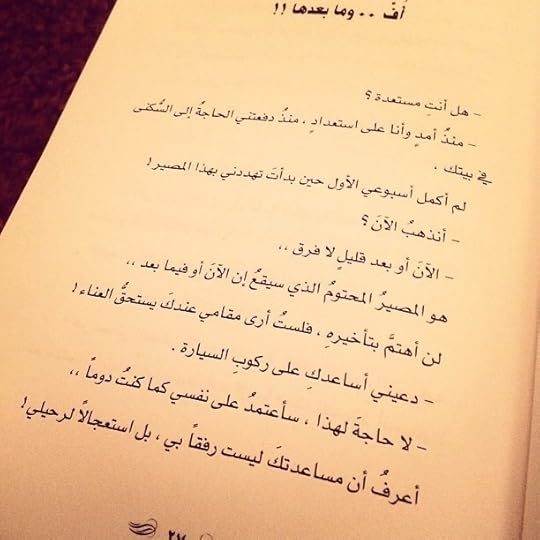 أفّ .. وما بعدها !!
- هل أنتِ مستعدة ؟
- منذُ أمدٍ وأنا على استعدادٍ ، منذُ دفعتني الحاجةُ إلى السُّكنى
في بيتك .
لم أكمل أسبوعي الأول حين بدأتَ تهددني بهذا المصير!
- أنذهبُ الآنَ ؟
- الآنَ أو بعد قليلٍ لا فرق ،،
هو المصيرُ المحتومُ الذي سيقعُ إن الآنَ أو فيما بعد ،،
لن أهتمَّ بتأخيرهِ ، فلستُ أرى مقامي عندكَ يستحقُّ العناء !
- دعيني أساعدكِ على ركوبِ السيارة .
- لا حاجةَ لهذا ، سأعتمدُ على نفسي كما كنتُ دوماً ،،
أعرفُ أن مساعدتكَ ليست رفقاً بي ، بل استعجالاً لرحيلي!
٢٧